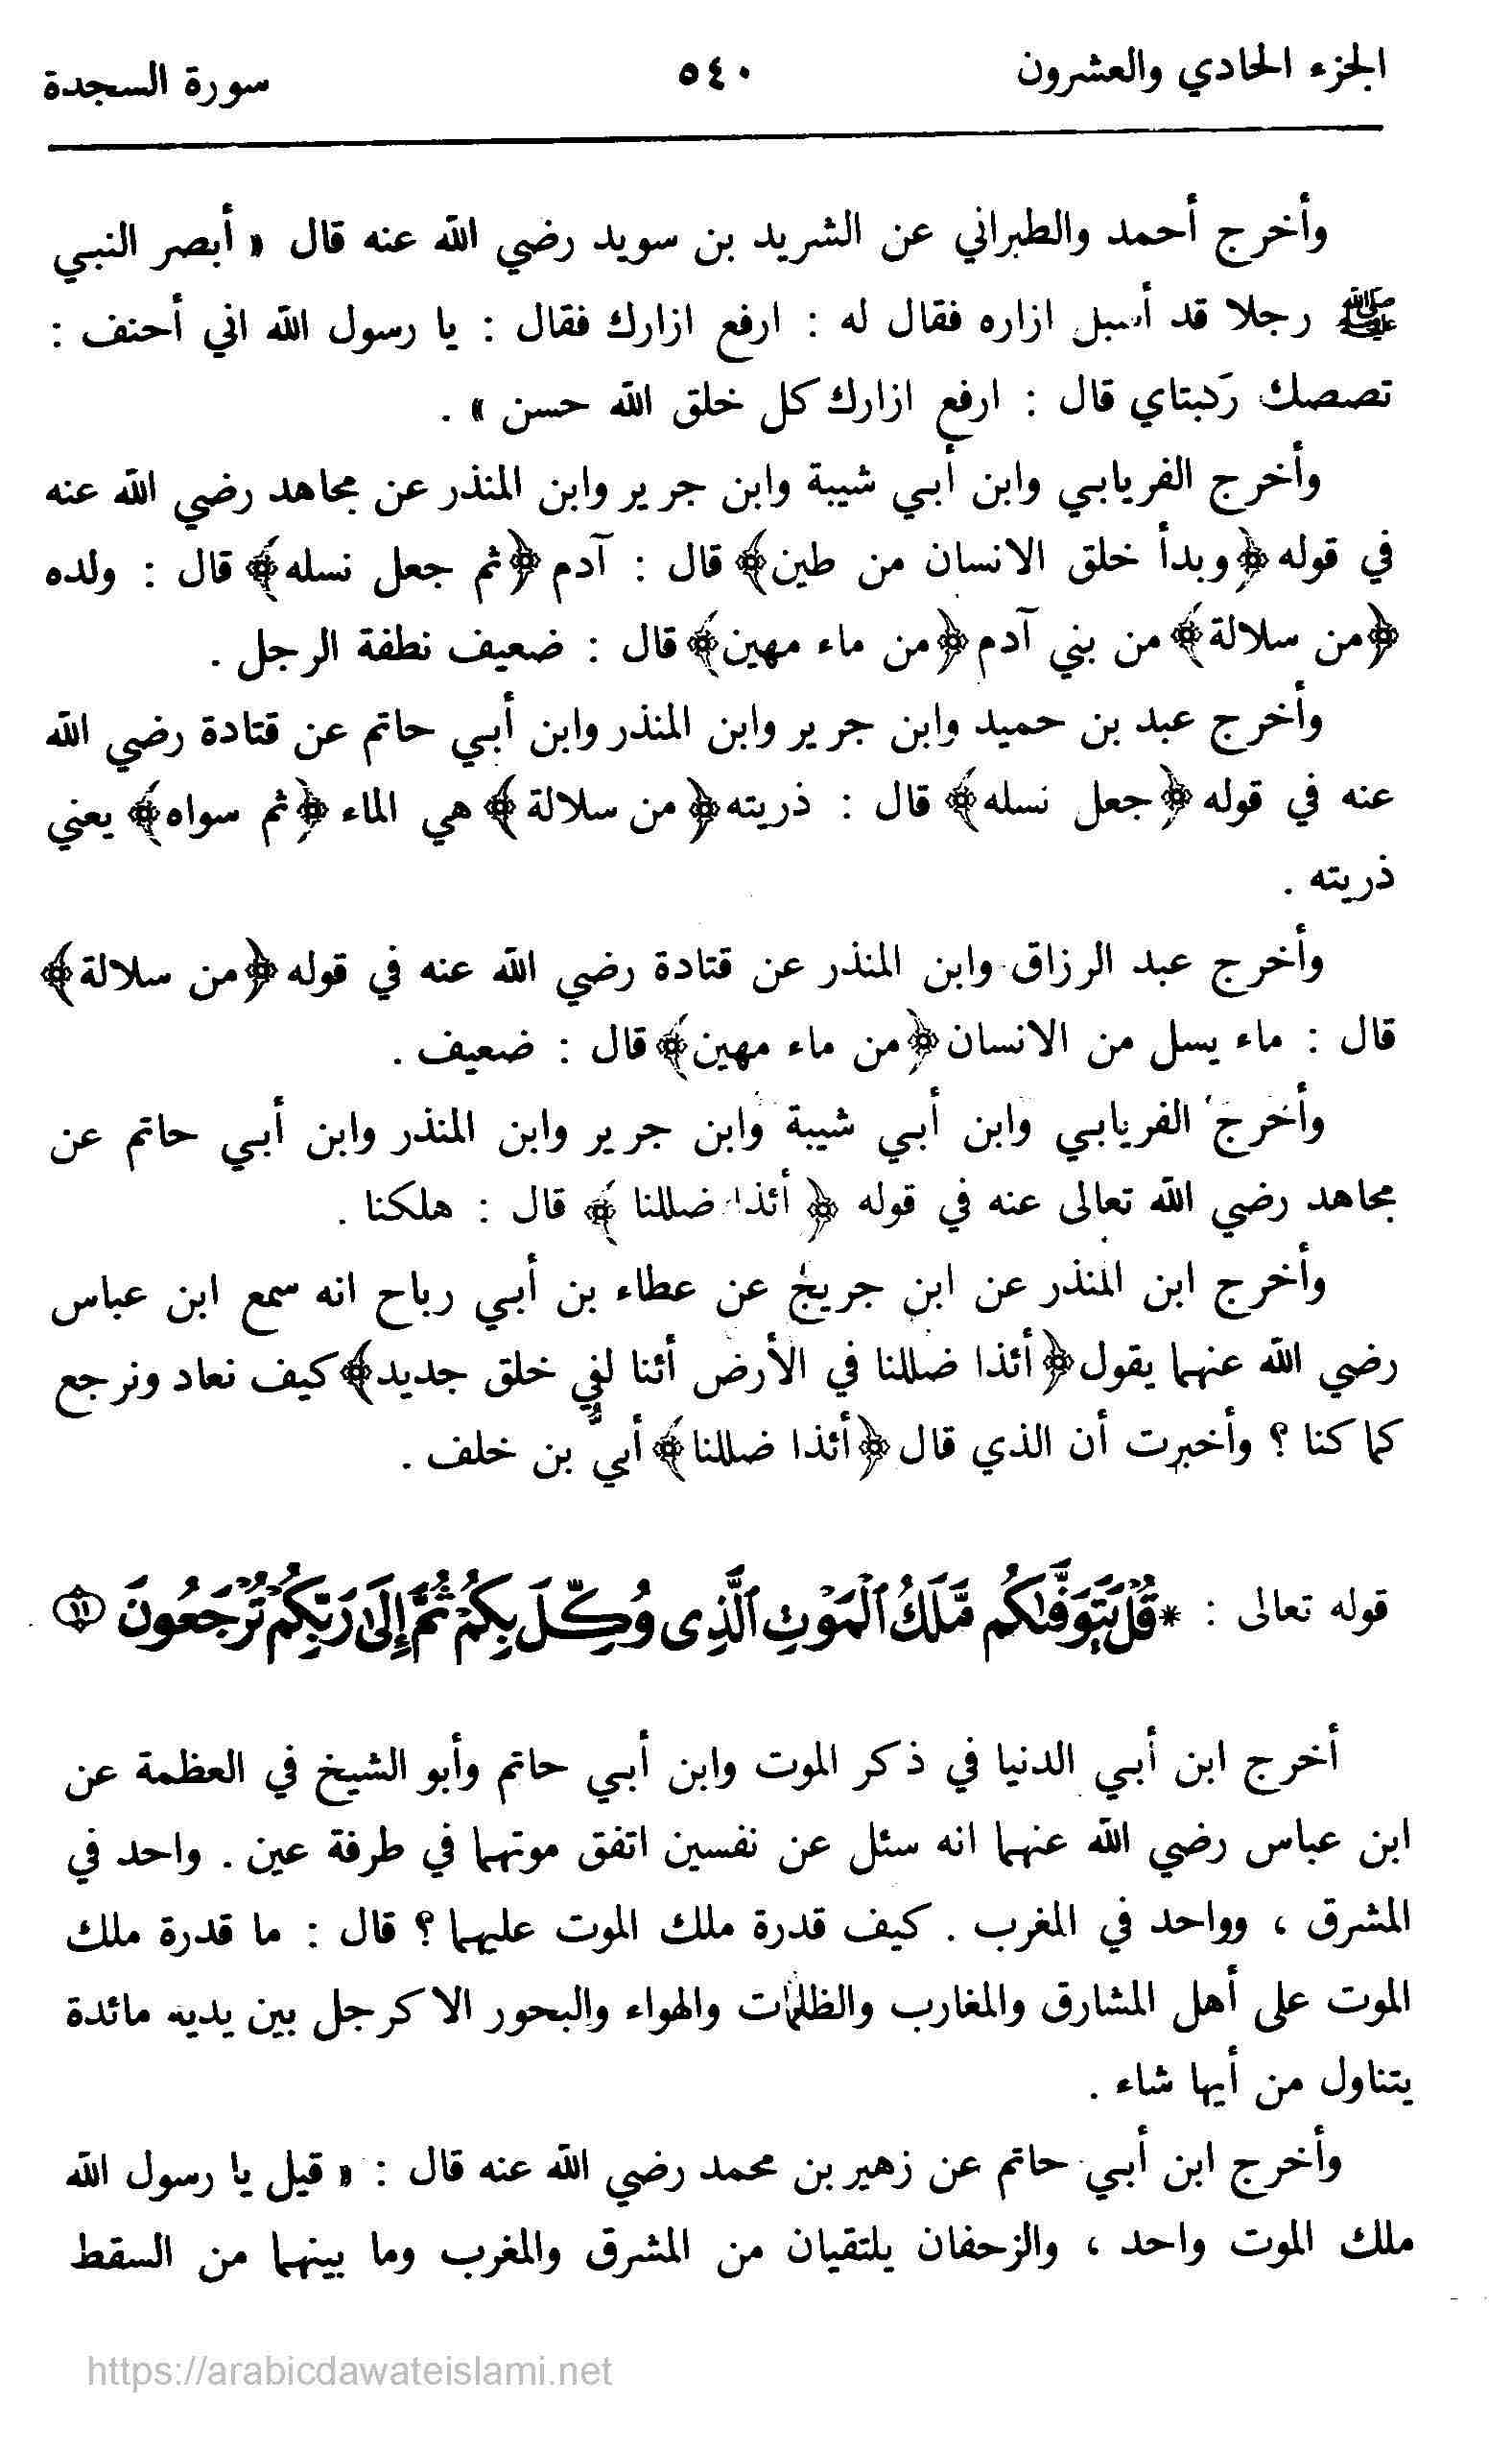 الجزء الحادي والعشرون ٥٤٠ سورة السجدة
وأخرج أحمد والطبراني عن الشريد بن سويد رضي الله عنه قال « أبصر النبي
ﷺ رجلا قد أسبل ازاره فقال له : ارفع ازارك فقال : يا رسول الله اني أحنف :
تصصك رَكبتاي قال : ارفع ازارك كل خلق الله حسن » .
وأخرج الفريابي وابن أبي شيبة وابن جرير وابن المنذر عن مجاهد رضي الله عنه
في قوله ﴿وبدأ خلق الانسان من طين﴾ قال : آدم ﴿ثم جعل نسله﴾ قال : ولده
﴿من سلالة﴾ من بني آدم ﴿من ماء مهين﴾ قال : ضعيف نطفة الرجل .
وأخرج عبد بن حميد وابن جرير وابن المنذر وابن أبي حاتم عن قتادة رضي الله
عنه في قوله ﴿جعل نسله﴾ قال : ذريته ﴿من سلالة﴾ هي الماء ﴿ثم سواه﴾ يعني
ذريته .
وأخرج عبد الرزاق وابن المنذر عن قتادة رضي الله عنه في قوله ﴿من سلالة﴾
قال : ماء يسل من الانسان ﴿من ماء مهين﴾ قال : ضعيف .
وأخرج الفريابي وابن أبي شيبة وابن جرير وابن المنذر وابن أبي حاتم عن
مجاهد رضي الله تعالى عنه في قوله ﴿ أئذا ضللنا ﴾ قال : هلكنا .
وأخرج ابن المنذر عن ابن جريج عن عطاء بن أبي رباح انه سمع ابن عباس
رضي الله عنهما يقول ﴿أئذا ضللنا في الأرض أئنا لفي خلق جديد﴾ كيف نعاد ونرجع
كما كنا ؟ وأخبرت أن الذي قال ﴿أئذا ضللنا﴾ أبيُّ بن خلف .
قوله تعالى : * قُلْ يَتَوَفَّىٰكُم مَّلَكُ ٱلْمَوْتِ ٱلَّذِى وُكِّلَ بِكُمْ ثُمَّ إِلَىٰ رَبِّكُمْ تُرْجَعُونَ ﴿١١﴾
أخرج ابن أبي الدنيا في ذكر الموت وابن أبي حاتم وأبو الشيخ في العظمة عن
ابن عباس رضي الله عنهما انه سئل عن نفسين اتفق موتهما في طرفة عين . واحد في
المشرق ، وواحد في المغرب . كيف قدرة ملك الموت عليهما ؟ قال : ما قدرة ملك
الموت على أهل المشارق والمغارب والظلمات والهواء والبحور الا كرجل بين يديه مائدة
يتناول من أيها شاء .
وأخرج ابن أبي حاتم عن زهير بن محمد رضي الله عنه قال : « قيل يا رسول الله
ملك الموت واحد ، والزحفان يلتقيان من المشرق والمغرب وما بينهما من السقط
https://arabicdawateislami.net